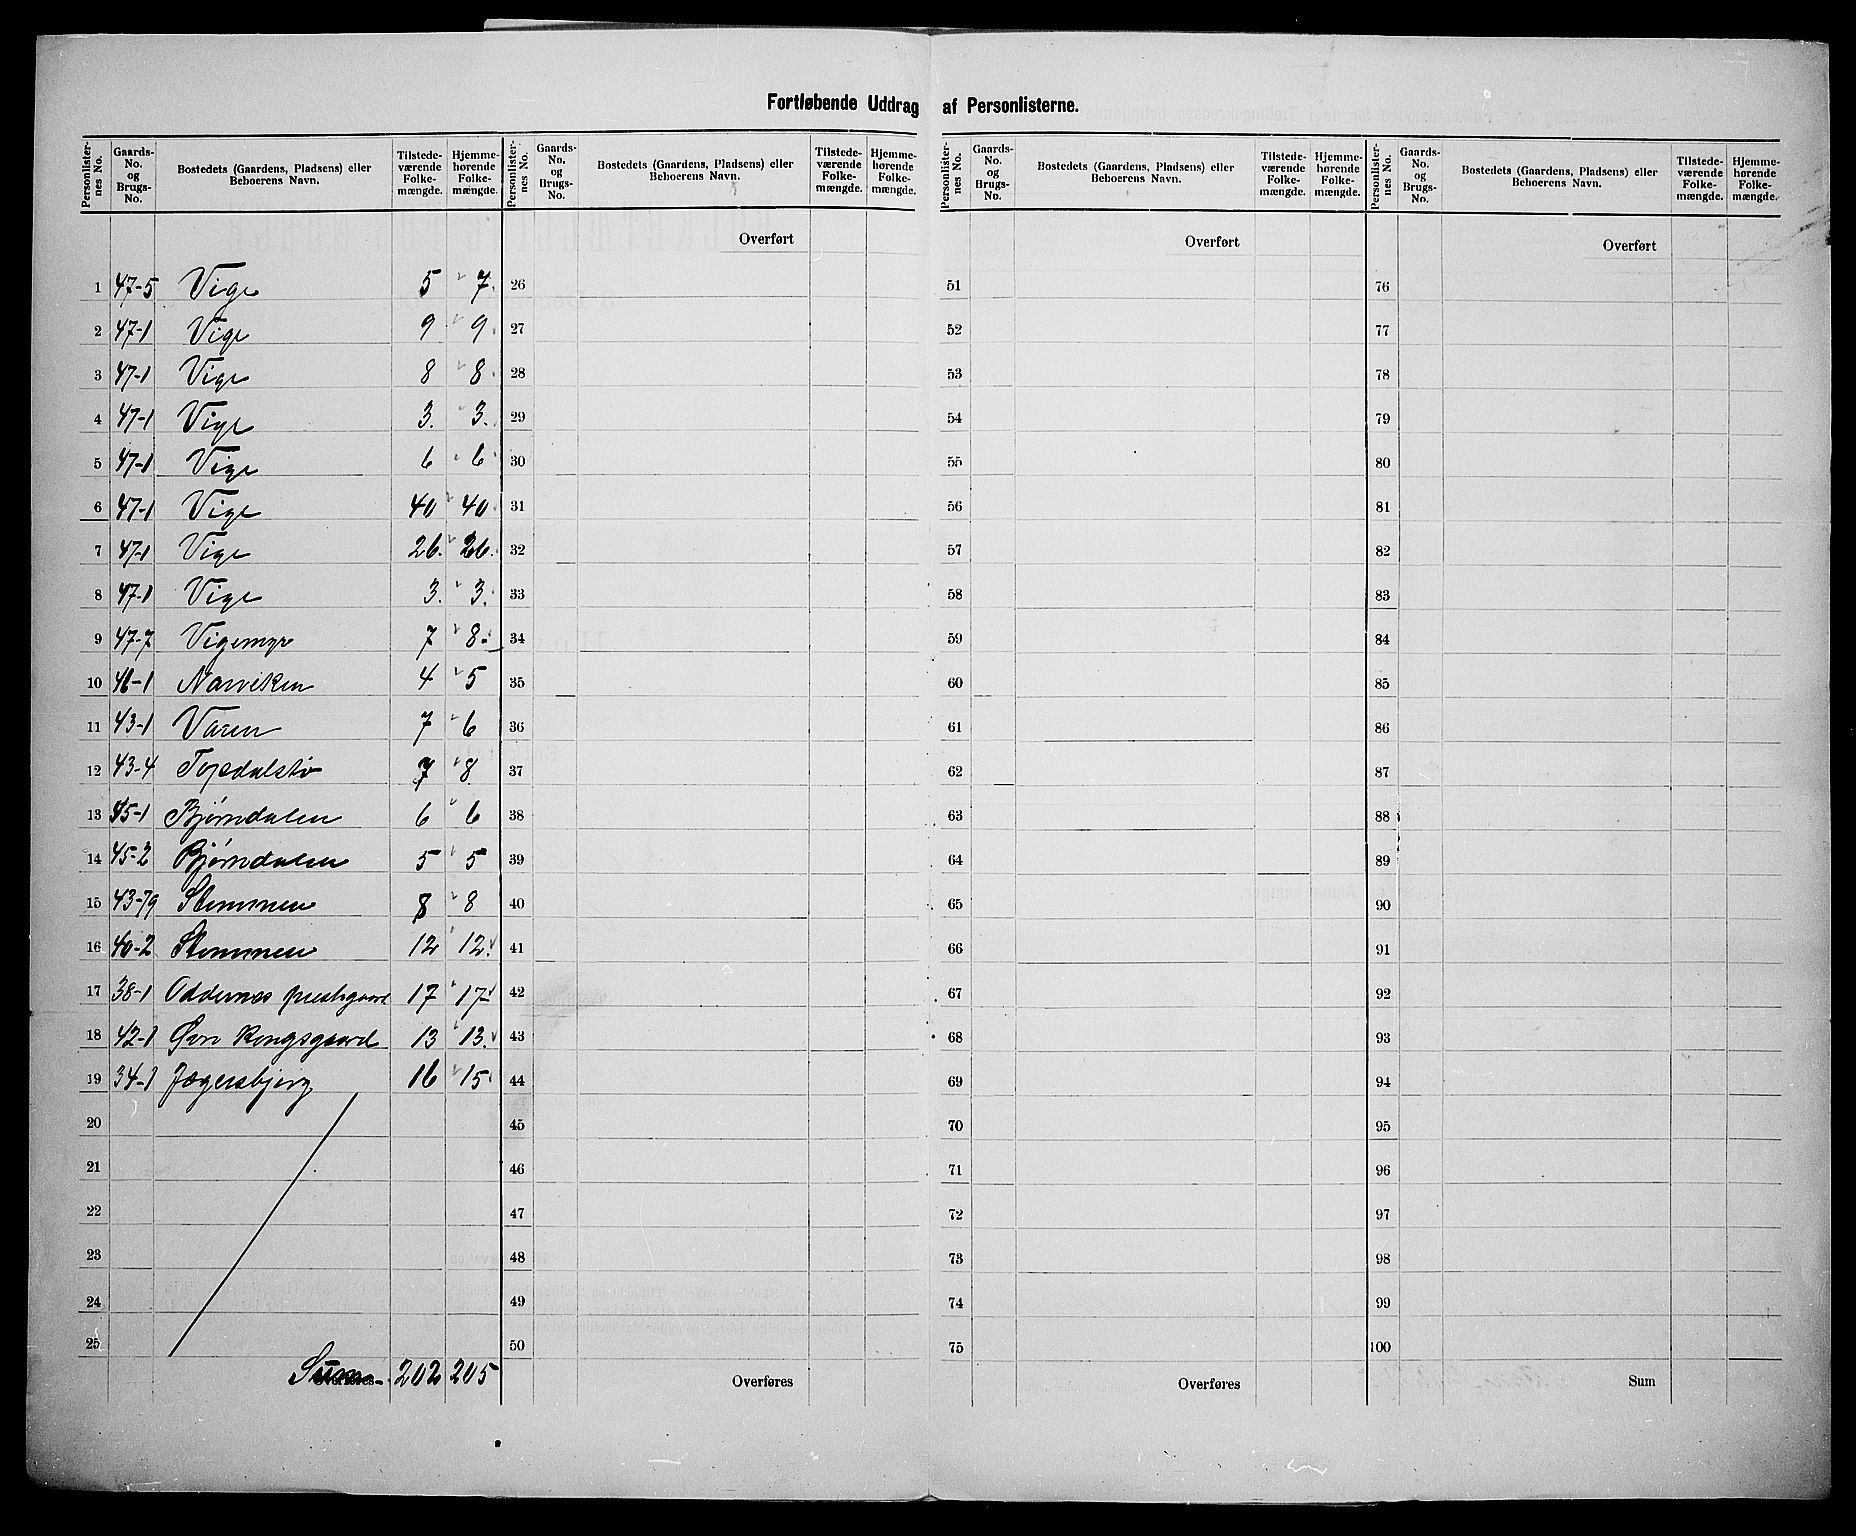 Fortløbende Uddrag af Personlisterne.
Personlister-nes No. Gaards-No. og Brugs-No. Bostedets (Gaardens, Pladsens) eller Beboerens Navn. Tilstede-værende Folke-mængde. Hjemme-hørende Folke-mængde.
1 47-5 Vige 5 7.
2 47-1 Vige 9 9.
3 47-1 Vige 8 8.
4 47-1 Vige 3. 3.
5 47-1 Vige 6 6.
6 47-1 Vige 40 40.
7 47-1 Vige 26. 26.
8 47-1 Vige 3. 3.
9 47-7 Vigemyr 7 8.
10 46-1 Narviken 4 5
11 43-1 Varen 7 6
12 43-4 Topdalstø 7 8
13 45-1 Bjørndalen 6 6
14 45-2 Bjørndalen 5 5
15 43-79 Stemmen 8 8
16 40-2 Stemmen 12 12.
17 38-1 Oddernes prestegaard 17 17
18 42-1 Øvre Kongsgaard 13 13.
19 34-1 Jægersbjerg 16 15
20
21
22
23
24
25
Overføres Sum 202 205
Personlister-nes No. Gaards-No. og Brugs-No. Bostedets (Gaardens, Pladsens) eller Beboerens Navn. Tilstede-værende Folke-mængde. Hjemme-hørende Folke-mængde.
Overført
26
27
28
29
30
31
32
33
34
35
36
37
38
39
40
41
42
43
44
45
46
47
48
49
50
Overføres
Personlister-nes No. Gaards-No. og Brugs-No. Bostedets (Gaardens, Pladsens) eller Beboerens Navn. Tilstede-værende Folke-mængde. Hjemme-hørende Folke-mængde.
Overført
51
52
53
54
55
56
57
58
59
60
61
62
63
64
65
66
67
68
69
70
71
72
73
74
75
Overføres
Personlister-nes No. Gaards-No. og Brugs-No. Bostedets (Gaardens, Pladsens) eller Beboerens Navn. Tilstede-værende Folke-mængde. Hjemme-hørende Folke-mængde.
Overført
76
77
78
79
80
81
82
83
84
85
86
87
88
89
90
91
92
93
94
95
96
97
98
99
100
Sum